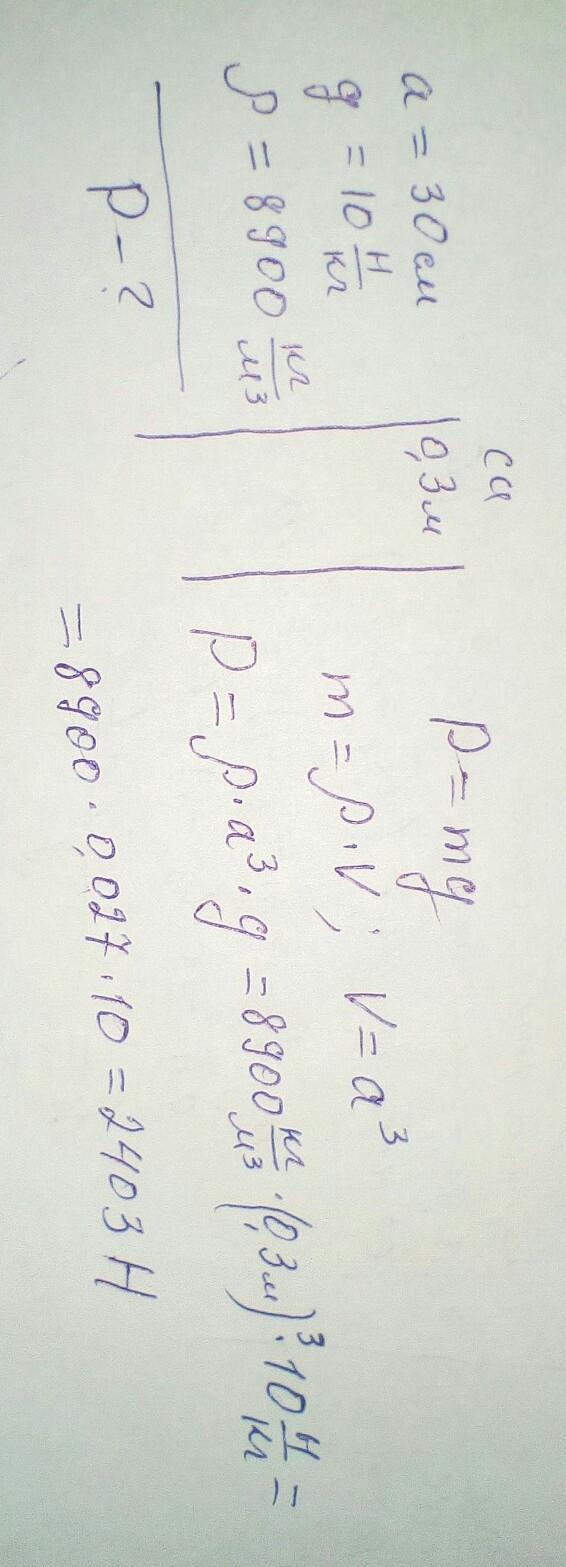 a = 30 см
g = 10 Н/кг
ρ = 8900 кг/м³
P - ?
СИ
0,3 м
P = mg
m = ρ · V; V = a³
P = ρ · a³ · g = 8900 кг/м³ · (0,3 м)³ · 10 Н/кг =
= 8900 · 0,027 · 10 = 2403 Н